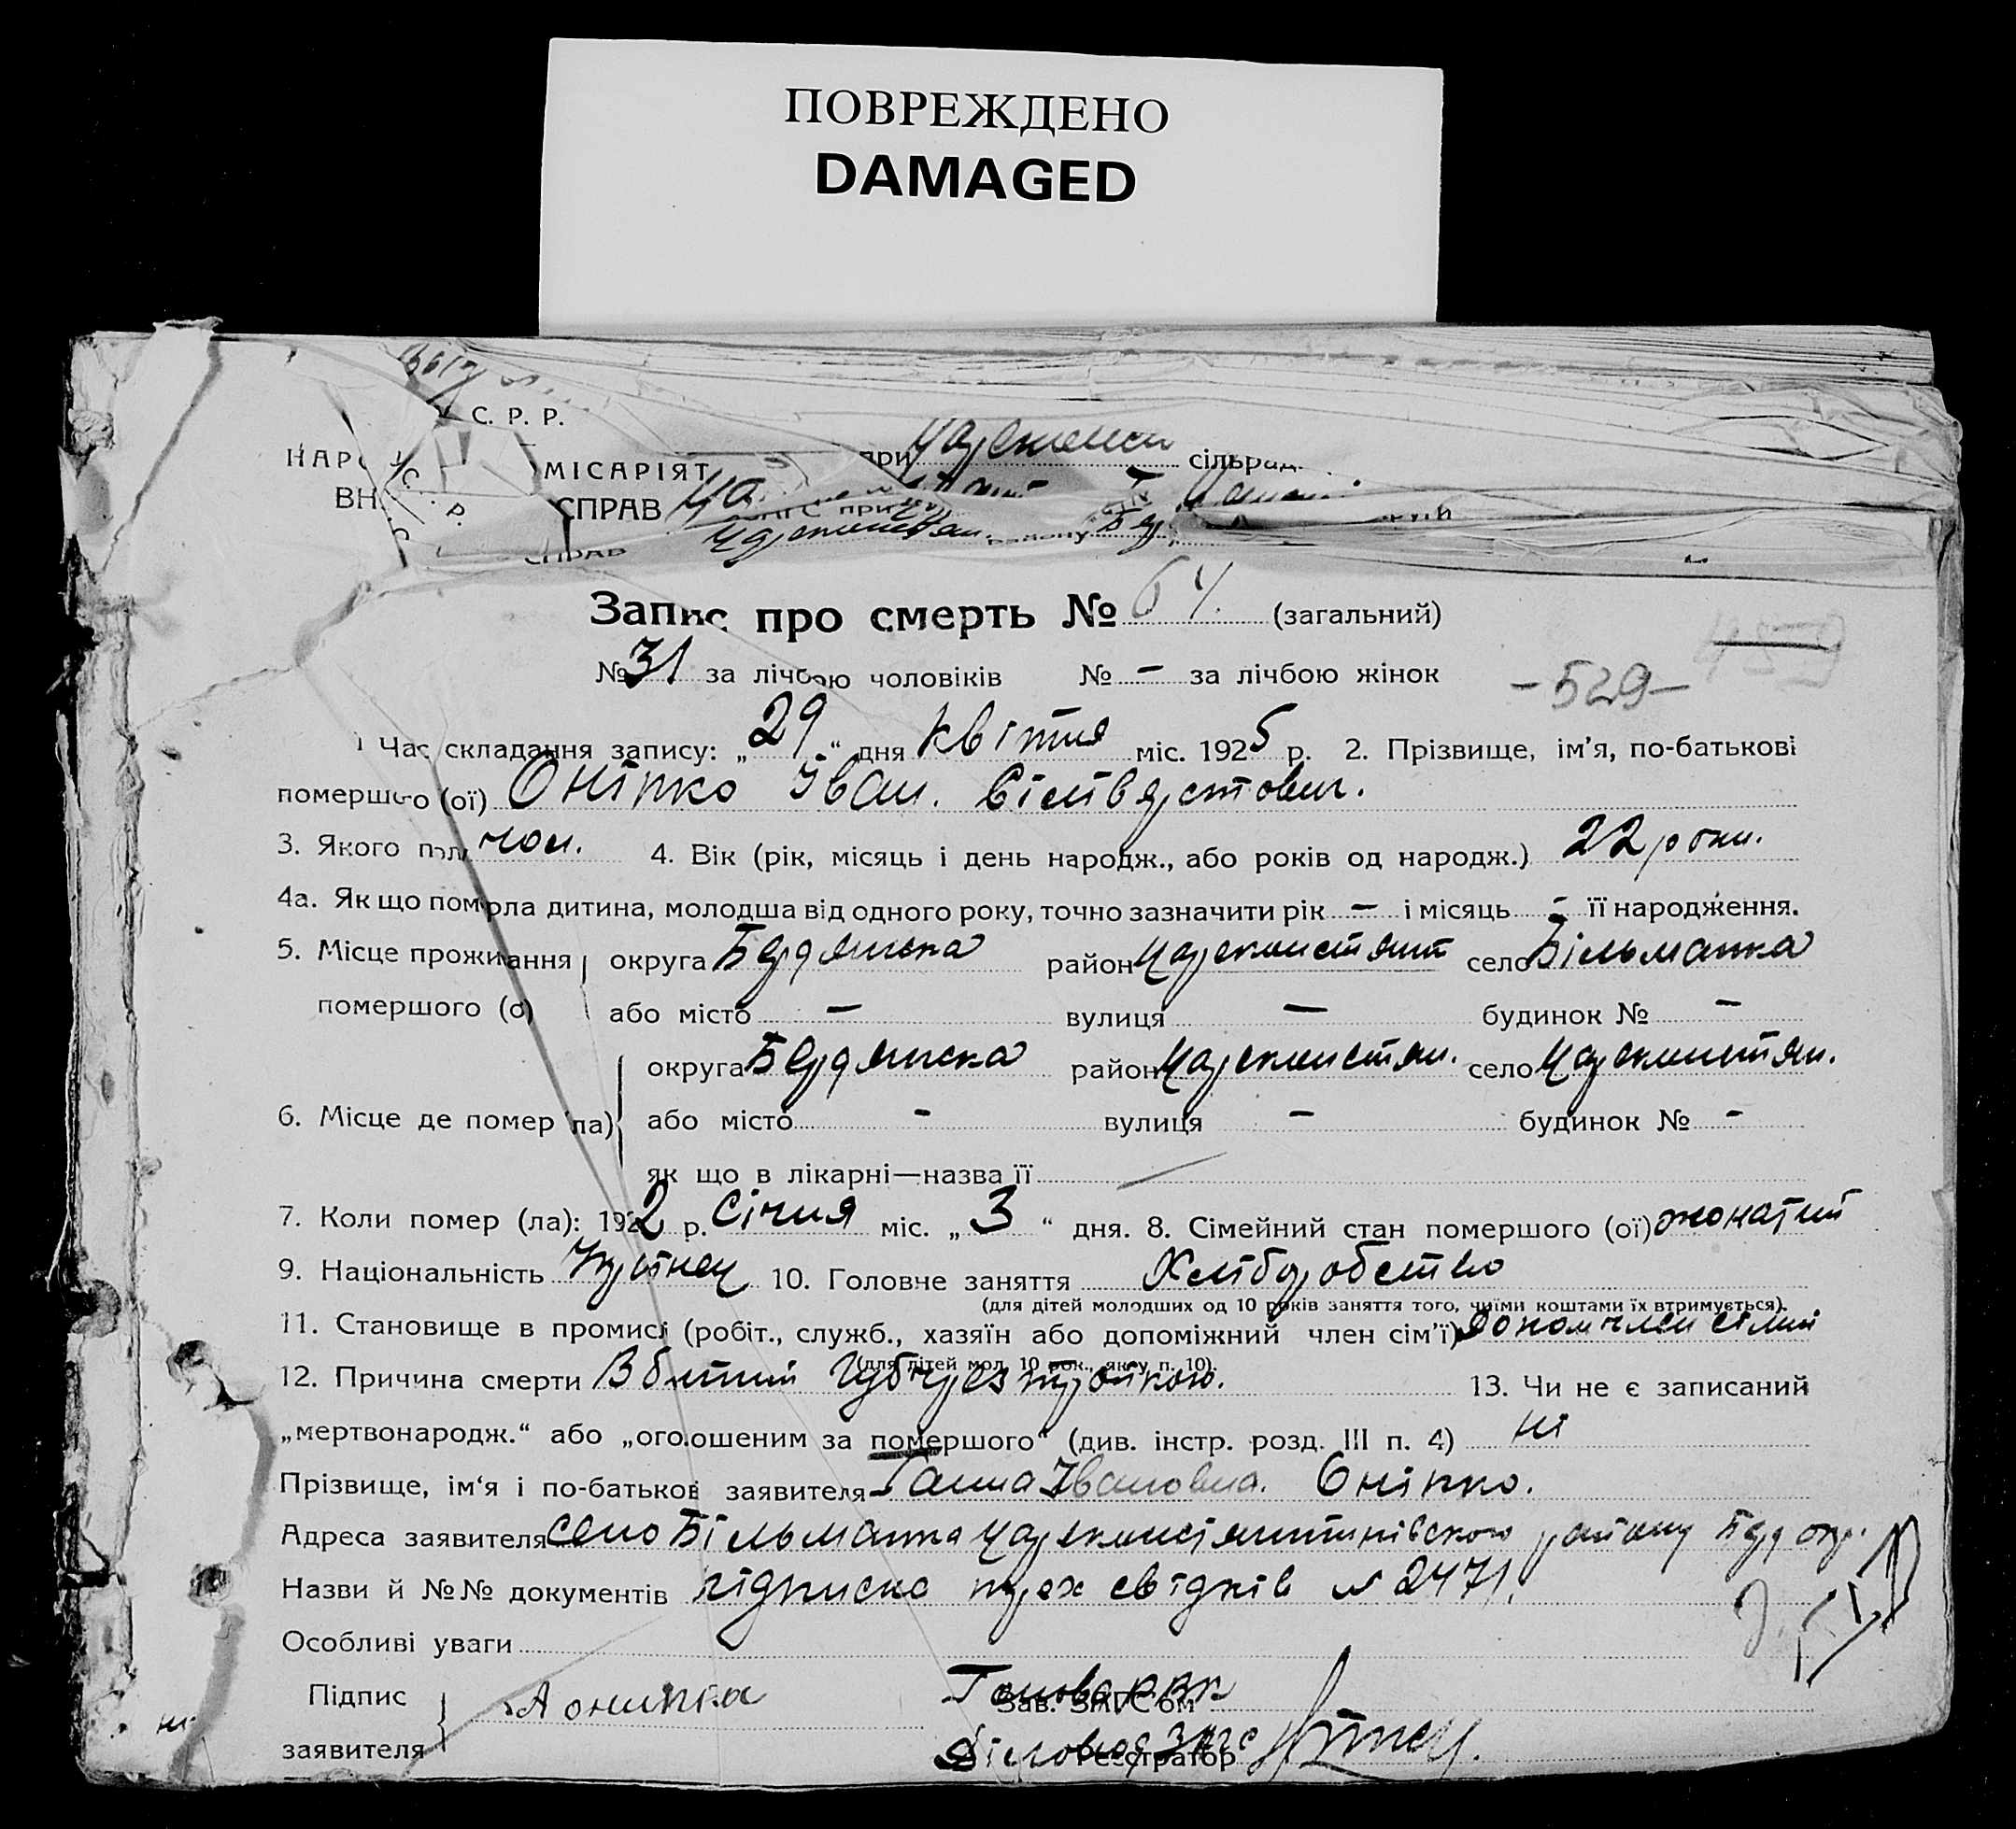 ПОВРЕЖДЕНО
DAMAGED
С. Р. Р.
МІСАРІЯТ при сільрад
СПРАВ
Запис про смерть № 64 (загальний)
№ 31 за лічбою чоловіків № - за лічбою жінок
-529- 459
1 Час складання запису: „29“ дня квітня міс. 1925 р. 2. Прізвище, ім'я, по-батькові
помершого (ої) Оніпко Іван. Сілівярстович.
3. Якого пол чол. 4. Вік (рік, місяць і день народж., або років од народж.) 22 роки.
4а. Як що померла дитина, молодша від одного року, точно зазначити рік - і місяць - її народження.
5. Місце проживання округа Бердянська район Цареконстянт село Більманка
помершого (о) або місто - вулиця - будинок № -
округа Бердянська район Цареконстян. село Цареконстян.
6. Місце де помер ла) або місто - вулиця - будинок № -
як що в лікарні—назва її
7. Коли помер (ла): 1922 р. Січня міс. „3“ дня. 8. Сімейний стан помершого (ої) жонатий
9. Національність 10. Головне заняття Хліборобство
(для дітей молодших од 10 років заняття того, чиїми коштами їх втримується).
11. Становище в промислі (робіт., служб., хазяїн або допоміжний член сім'ї) допом член сімї
(для дітей мол. 10 рок., як у п. 10).
12. Причина смерти Вбитий тройкою. 13. Чи не є записаний
„мертвонародж.“ або „оголошеним за помершого“ (див. інстр. розд. III п. 4) ні
Прізвище, ім'я і по-батькові заявителя Ганна Івановна. Оніпко.
Адреса заявителя село Більманка Цареконстянтинівского району Берд окр.
Назви й №№ документів підписка трех свідків № 2471.
Особливі уваги
Підпис заявителя А онипка Голова РВК Зав. ЗАГС'ом
Діловод Загс Реєстратор